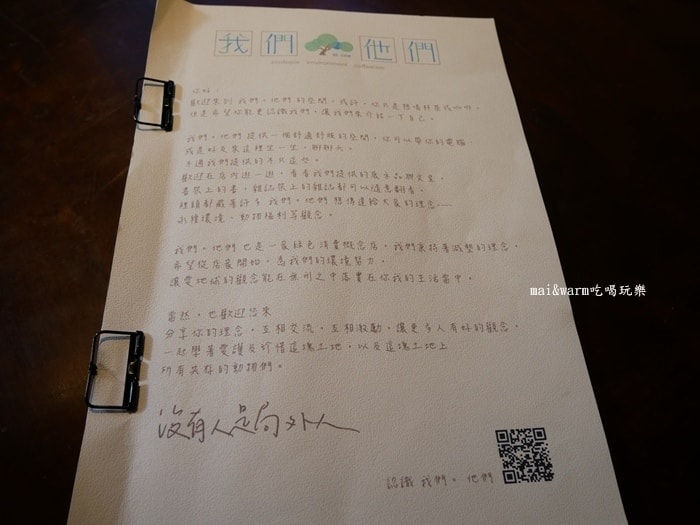 我們他們
你好，
歡迎來到 我們。他們的空間，或許，你只是想進來
但是希望你能更認識我們，讓我們來介紹一下自己。
我們。他們 提供一個舒適舒服的空間，你可以帶你的電腦
或是好友來這裡坐一坐，聊聊天。
不過我們提供的不只這些。
歡迎在店內逛一逛，看看我們提供的
書架上的書，雜誌架上的雜誌都可以隨意翻看。
裡頭都藏著許多 我們。他們 想傳達給大家的理念……
永續環境、動物福利等觀念。
我們。他們 也是一家綠色消費概念店，我們秉持著減塑的理念，
希望從店家開始，為我們的環境努力。
讓愛地球的觀念能在無形之中落實在你我的生活當中。
當然，也歡迎您來
分享你的理念，互相交流，互相激勵，讓更多人有好的觀念，
一起學著愛護及珍惜這塊土地，以及這塊土地上
所有美好的動物們。
沒有人是局外人
認識 我們。他們
mai&warm吃喝玩樂